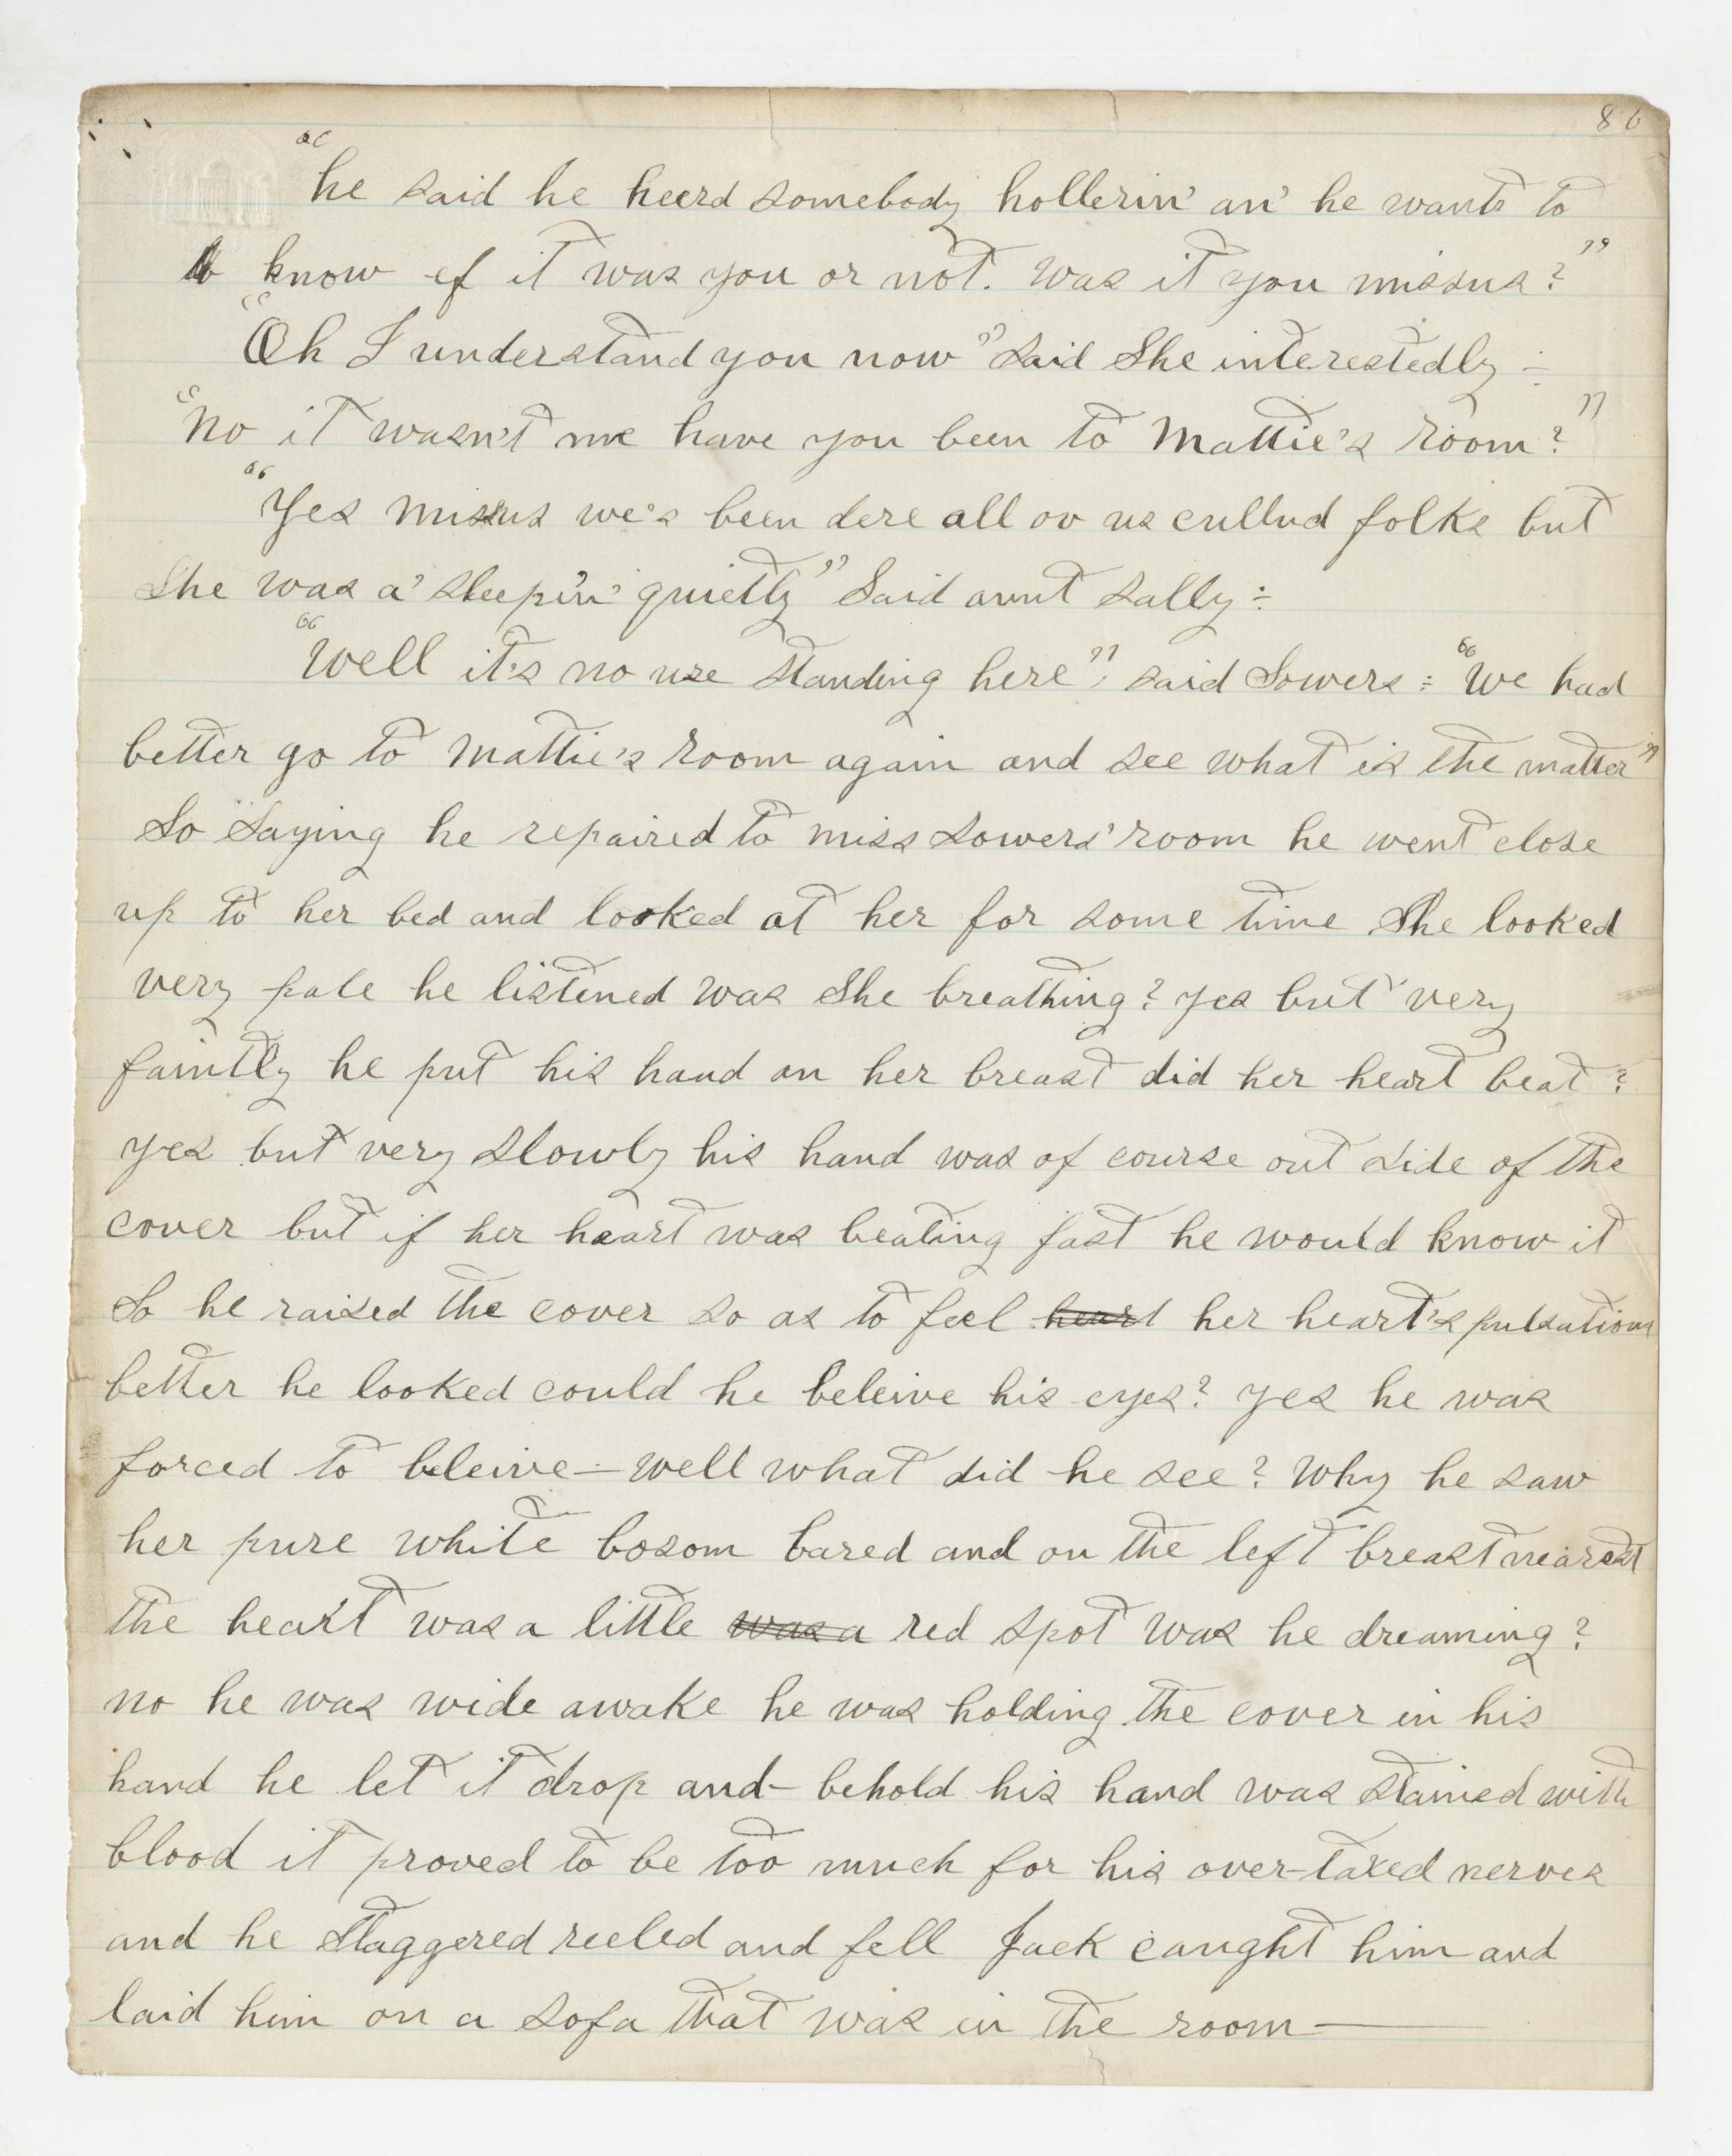 86
"he said he heerd somebody hollerin' an' he wants to
to know ef it was you or not. was it you missus?"
"Oh I understand you now" said she interestedly :-
"No it wasn't me have you been to Mattie's room?"
"Yes missus we's been dere all ov us cullud folks but
she was a' sleepin' quietly" said aunt Sally :-
"Well it's no use standing here", said Sowers : "We had
better go to Mattie's room again and see what is the matter"
So saying he repaired to miss Sowers' room he went close
up to her bed and looked at her for some time She looked
very pale he listened was she breathing? yes but very
faintly he put his hand on her breast did her heart beat?
yes but very slowly his hand was of course out side of the
cover but if her heart was beating fast he would know it
So he raised the cover so as to feel heart her heart's pulsations
better he looked could he beleive his eyes? yes he was
forced to beleive — well what did he see? Why he saw
her pure white bosom bared and on the left breast nearest
the heart was a little was a red spot was he dreaming?
no he was wide awake he was holding the cover in his
hand he let it drop and - behold his hand was stained with
blood it proved to be too much for his over-taxed nerves
and he staggered reeled and fell Jack caught him and
laid him on a sofa that was in the room —